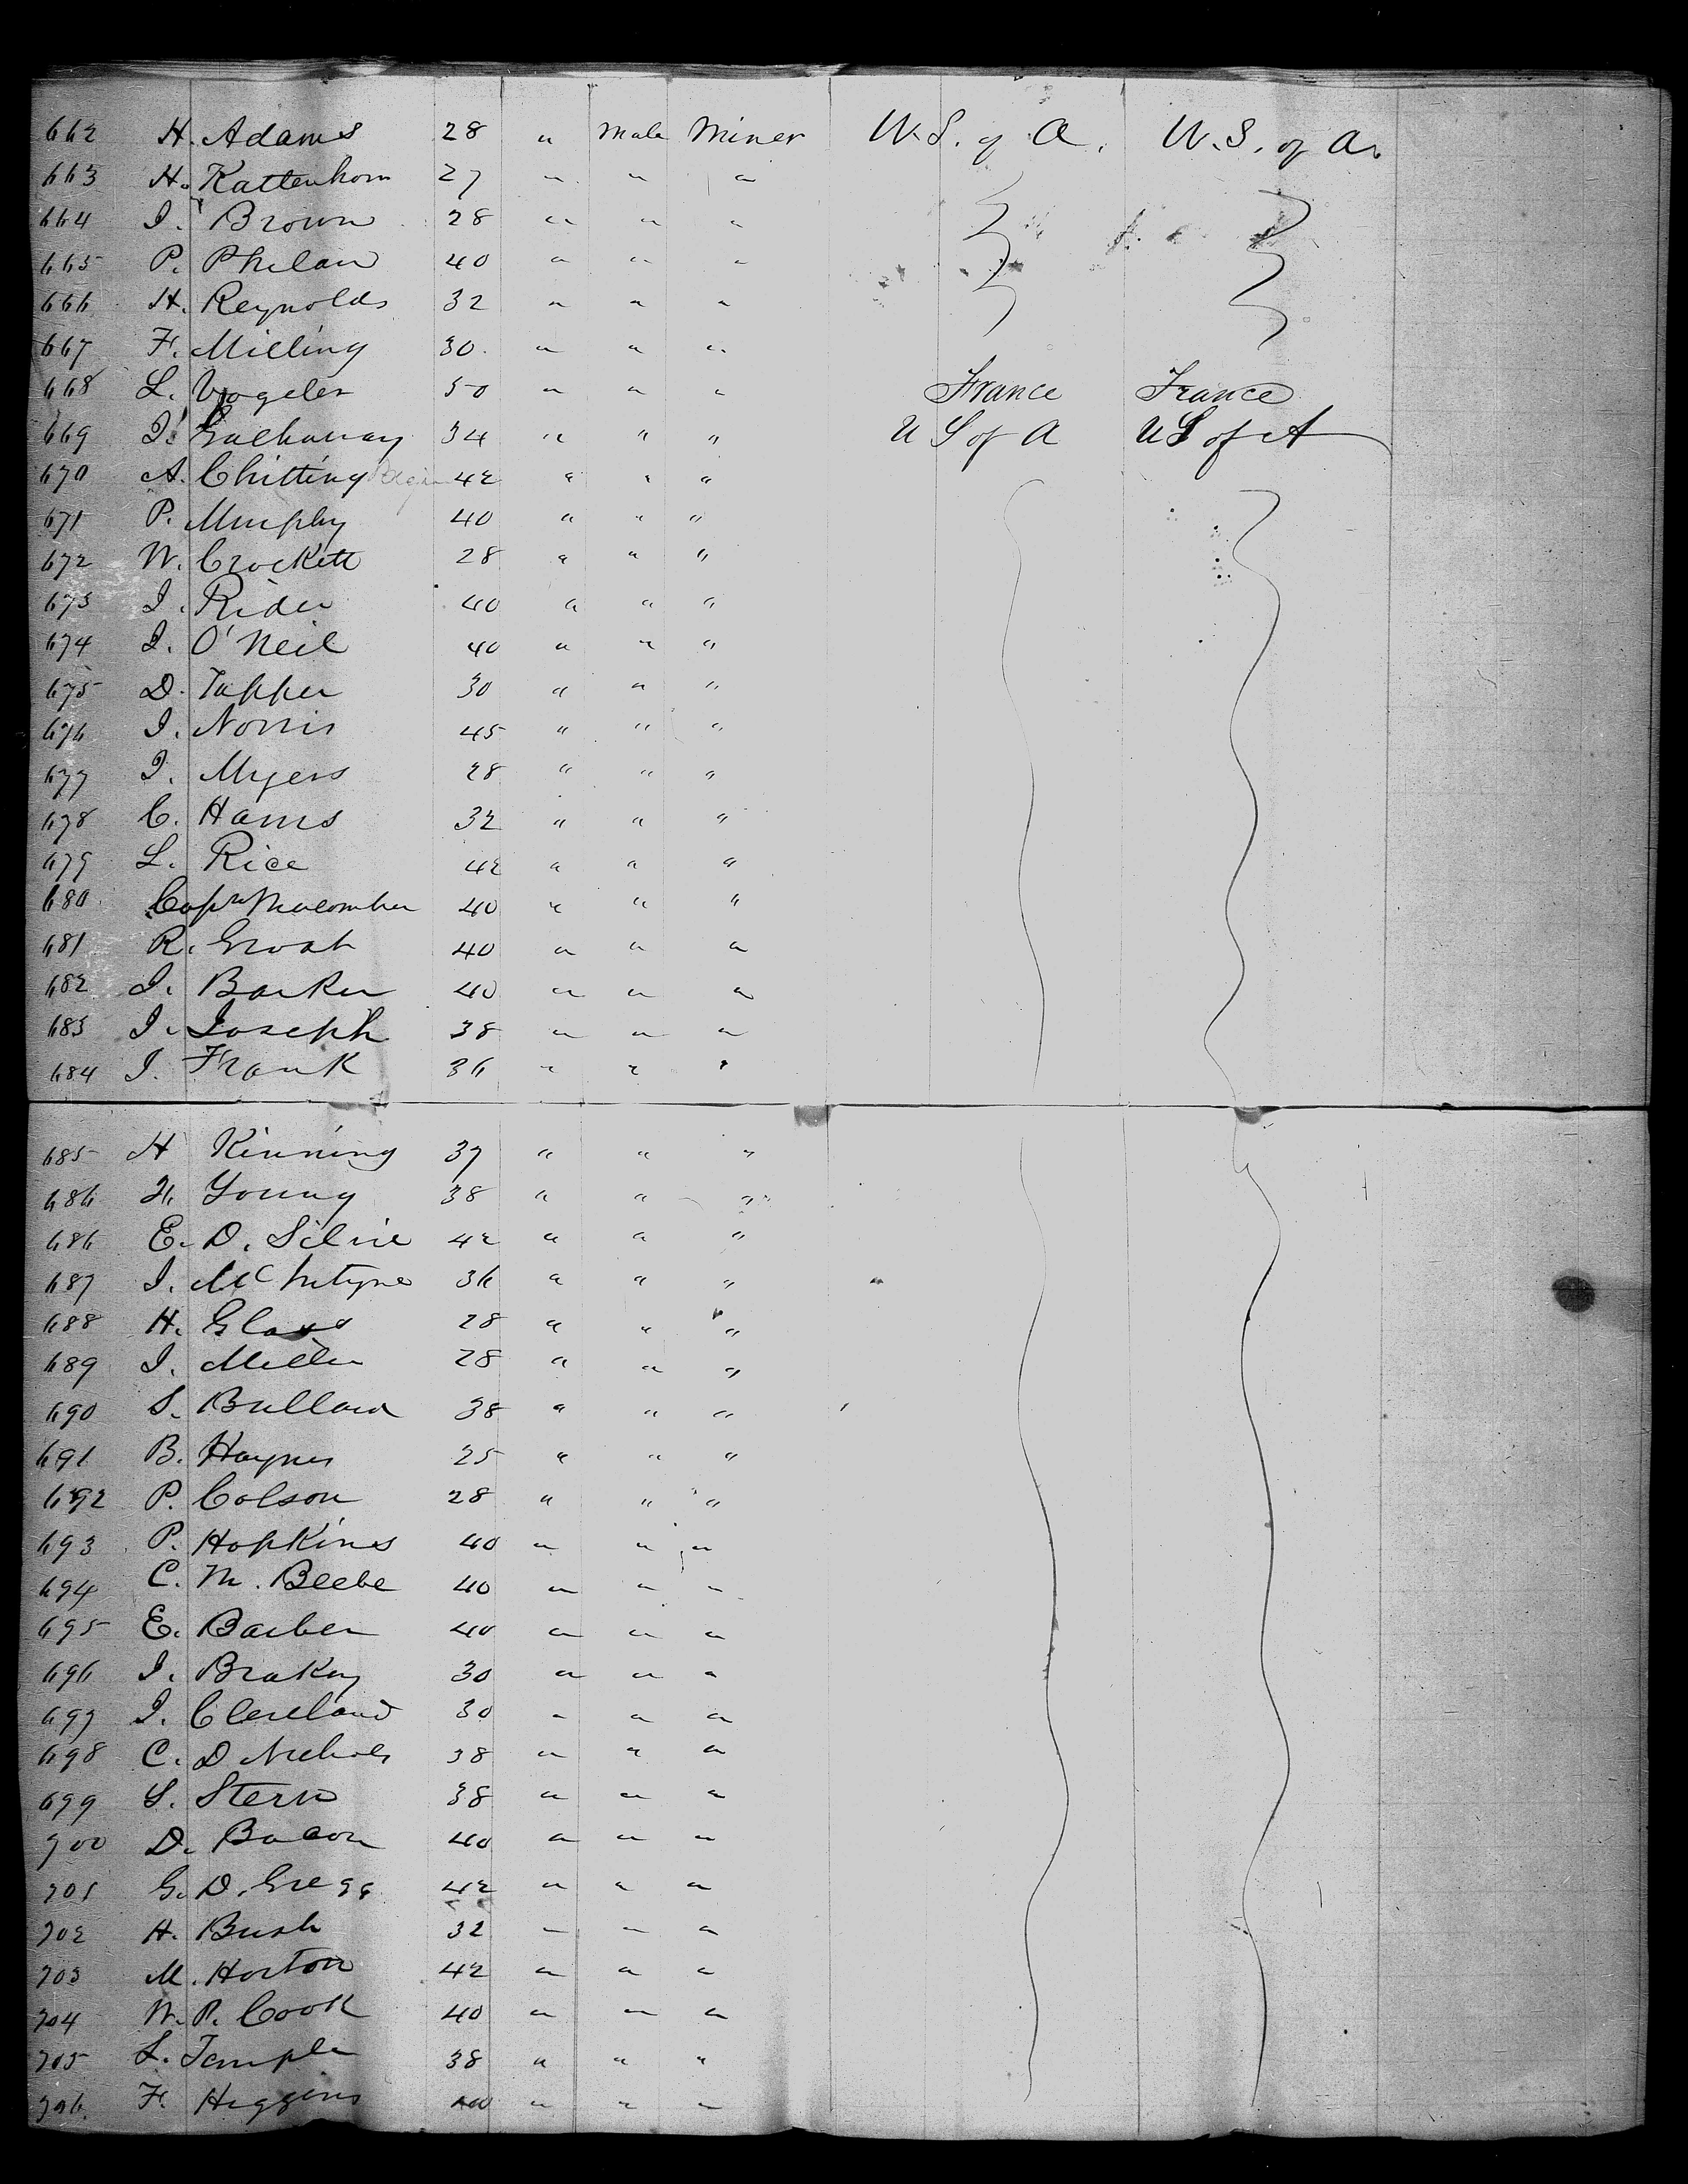 662 H. Adams 28 " Male Miner U.S. of A. U.S. of A.
663 H. Kattenhorn 27 " " "
664 I. Brown 28 " " "
665 P. Phelan 40 " " "
666 H. Reynolds 32 " " "
667 F. Milling 30 " " "
668 L. Vogeler 50 " " " France France
669 I. 34 " " " U S of A U S of A
670 A. Chitting 42 " " "
671 P. Murphy 40 " " "
672 W. Crockett 28 " " "
673 I. Rider 40 " " "
674 I. O'Neil 40 " " "
675 D. Tapper 30 " " "
676 I. Norris 45 " " "
677 I. Myers 28 " " "
678 C. Harris 32 " " "
679 L. Rice 42 " " "
680 Capt Macomber 40 " " "
681 R. Groat 40 " " "
682 I. Barker 40 " " "
683 I. Joseph 38 " " "
684 I. Frank 36 " " "
685 H Kinning 37 " " "
686 H. Young 38 " " "
686 E. D. Silvie 42 " " "
687 I. McIntyre 36 " " "
688 H. Glass 28 " " "
689 I. Miller 28 " " "
690 S. Bullard 38 " " "
691 B. Haynes 25 " " "
692 P. Colson 28 " " "
693 P. Hopkins 40 " " "
694 C. M. Beebe 40 " " "
695 E. Barber 40 " " "
696 I. Brakey 30 " " "
697 I. Cleveland 30 " " "
698 C. D Nichols 38 " " "
699 S. Stern 38 " " "
700 D. Bacon 40 " " "
701 G. D. Gregg 42 " " "
702 H. Bush 32 " " "
703 M. Horton 42 " " "
704 W. P. Cook 40 " " "
705 S. Temple 38 " " "
706 F. Higgins 40 " " "